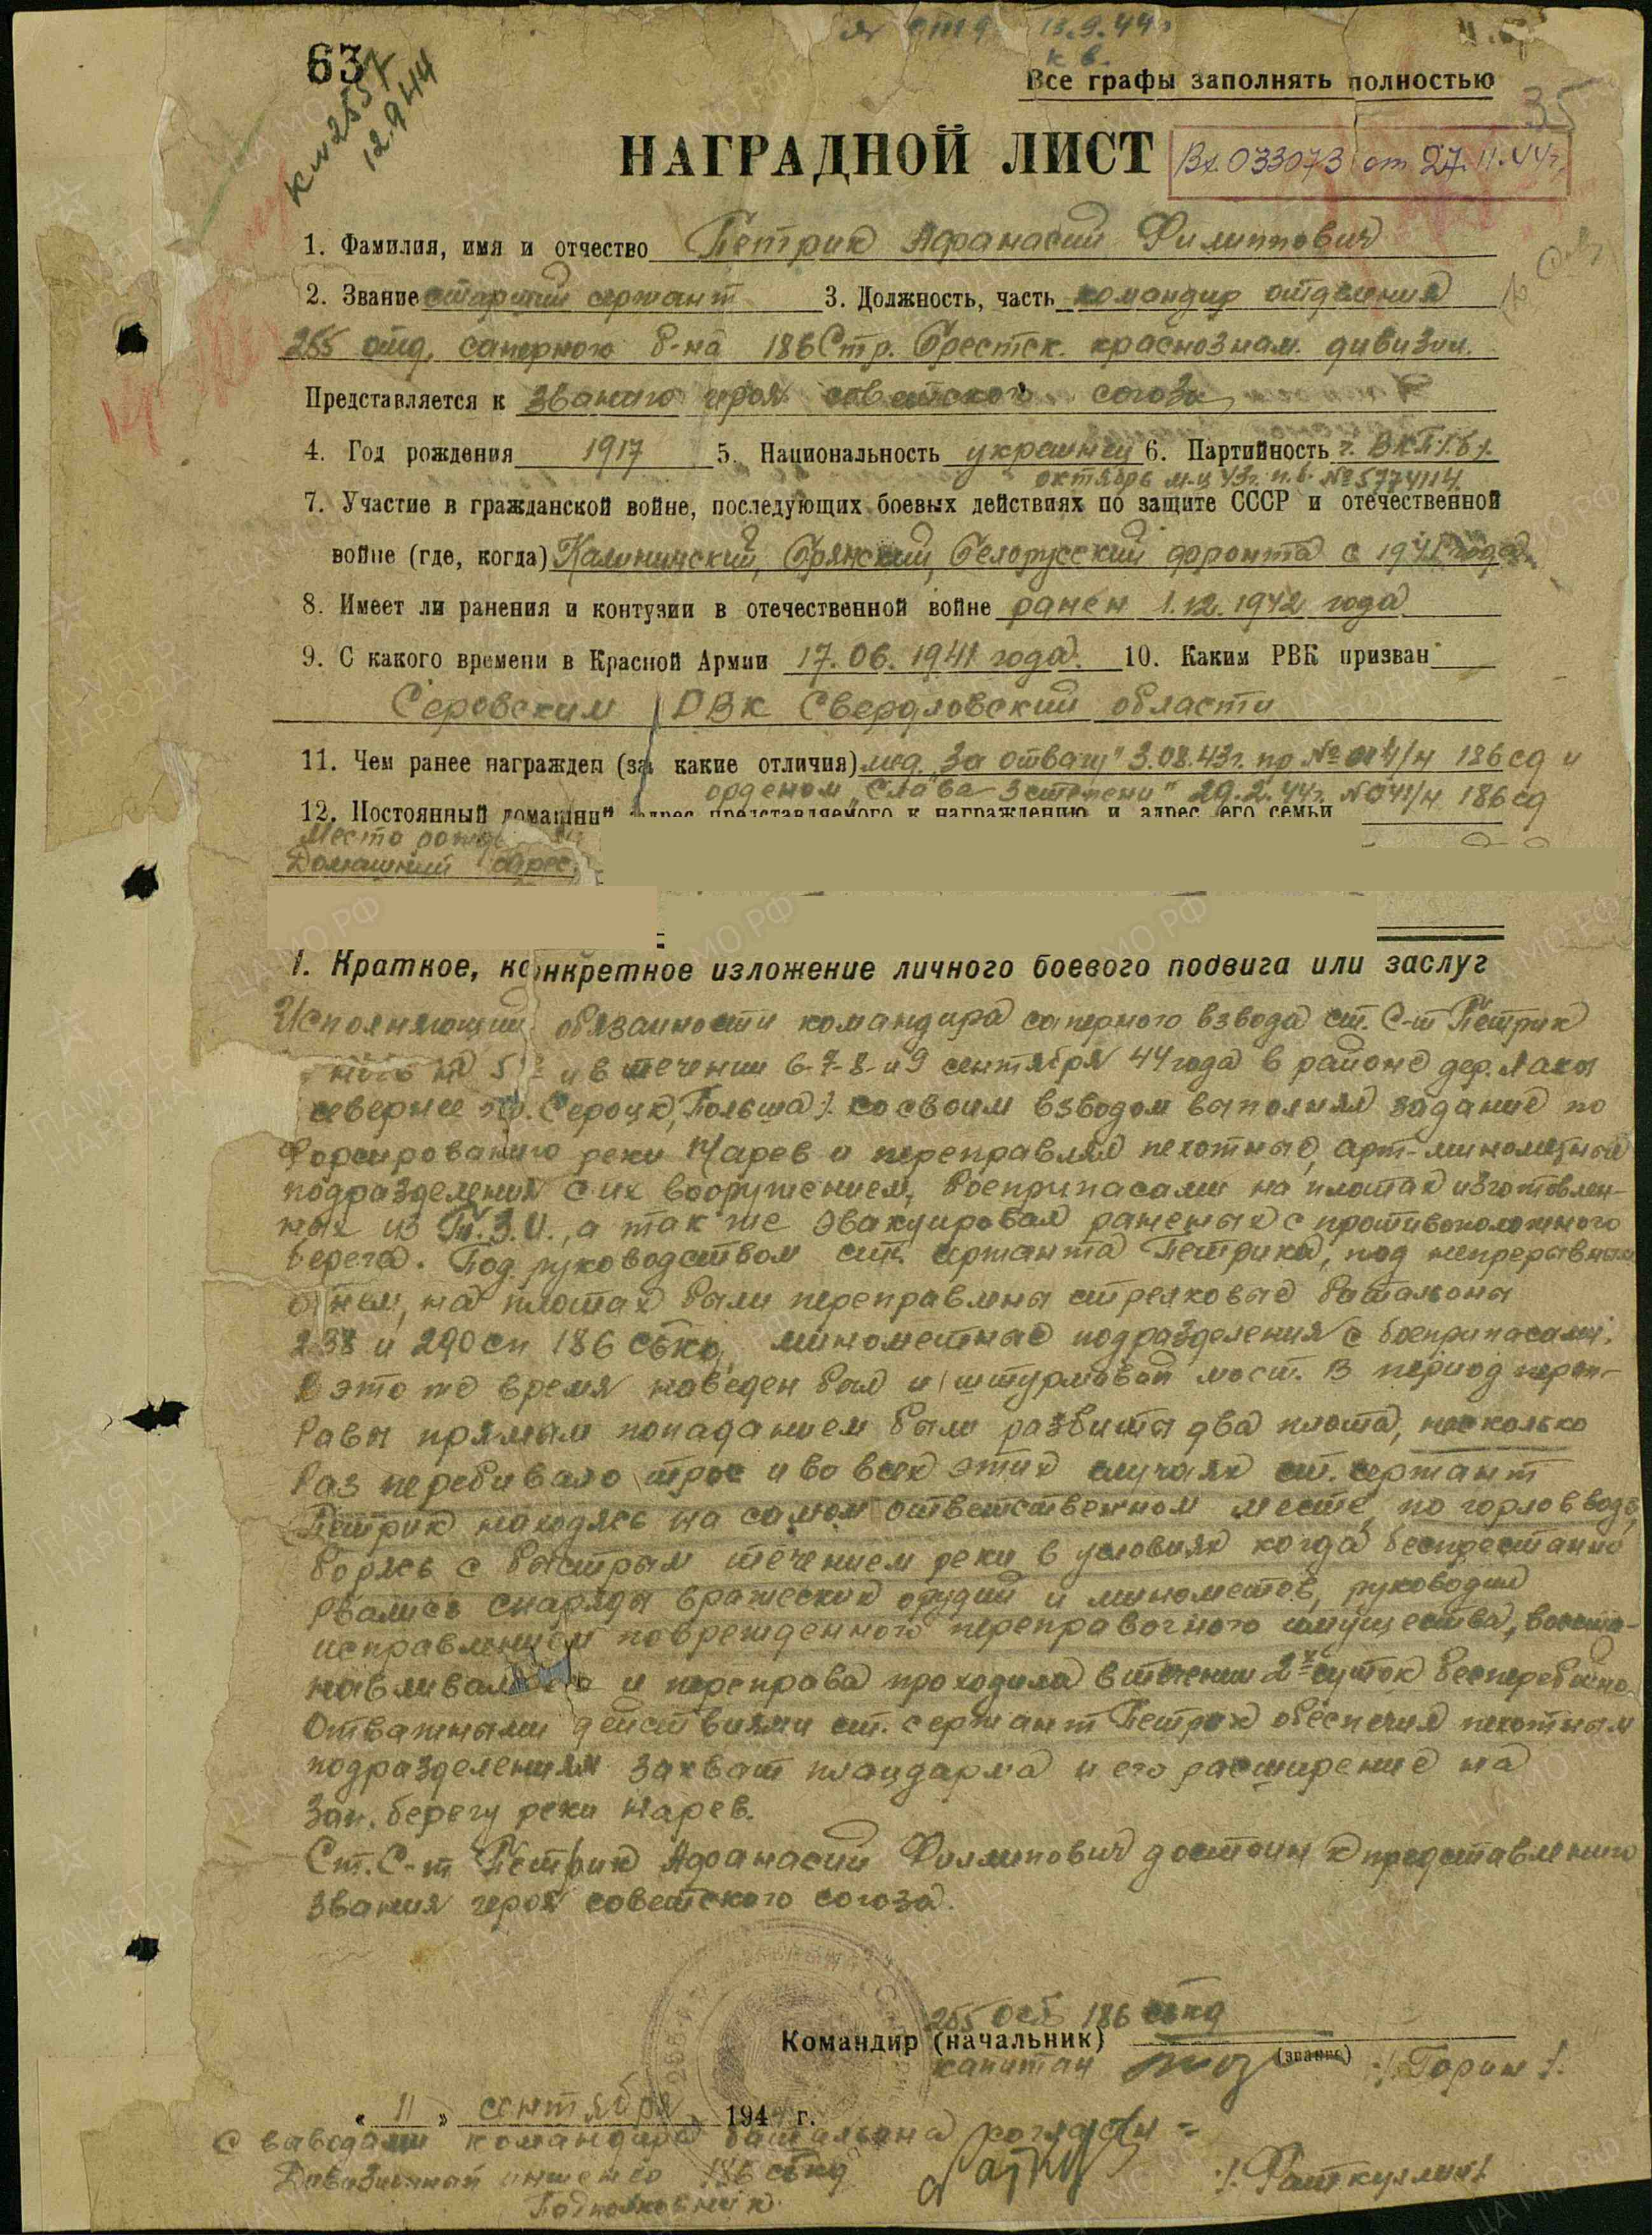 63
13.9.44г
12.9.44
Все графы заполнять полностью
35
НАГРАДНОЙ ЛИСТ
Вх. 033073 от 27.11.44г.
1. Фамилия, имя и отчество Петрик Афанасий Филиппович
2. Звание старший сержант 3. Должность, часть командир отделения
255 отд. саперного б-на 186 Стр. Брестск. краснознам. дивизии.
Представляется к званию героя советского союза
4. Год рождения 1917 5. Национальность украинец 6. Партийность ч. ВКП(б).
октябрь м-ц 43г. п.б. № 5774114
7. Участие в гражданской войне, последующих боевых действиях по защите СССР и отечественной
войне (где, когда) Калининский, Брянский, Белорусский фронта с 1941 года
8. Имеет ли ранения и контузии в отечественной войне ранен 1.12.1942 года
9. С какого времени в Красной Армии 17.06.1941 года. 10. Каким РВК призван
Серовским РВК Свердловский области
11. Чем ранее награжден (за какие отличия) мед. "За отвагу" 3.08.43г. пр № 014/н 186 сд и
орденом "Слава 3 степени" 29.2.44г. № 041/н 186 сд
12. Постоянный домашний адрес представляемого к награждению и адрес его семьи
Место
Домашний адрес,
1. Краткое, конкретное изложение личного боевого подвига или заслуг
Исполняющий обязанности командира саперного взвода ст. с-т Петрик
на 5 и в течении 6-7-8-и 9 сентября 44 года в районе дер.
севернее Сероцк, Польша). со своим взводом выполнял задание по
Форсированию реки Нарев и переправлял пехотные, арт-минометные
подразделения с их вооружением, боеприпасами на плотах изготовлен-
ных из Т.З.И., а так же эвакуировал раненых с противоположного
берега. Под руководством ст. сержанта Петрика, под непрерывным
огнем, на плотах были переправлены стрелковые батальоны
238 и 290 сп 186 сбкд, минометные подразделения с боеприпасами.
В это же время наведен был и штурмовой мост. В период переп-
равы прямым попаданием были разбиты два плота, несколько
раз перебивало трос и во всех этих случаях ст. сержант
Петрик находясь на самом ответственном месте, по горло в воде,
борясь с быстрым течением реки в условиях когда беспрестанно
рвались снаряды вражеских орудий и минометов, руководил
исправлением поврежденного переправочного имущества, восста-
навливал и переправа проходила в течении 2-х суток бесперебойно.
Отважными действиями ст. сержант Петрик обеспечил пехотным
подразделениям захват плацдарма и его расширение на
зап. берегу реки Нарев.
Ст. С-т Петрик Афанасий Филипович достоин к представлению
звания героя советского союза.
255 осб 186 сбкд
Командир (начальник)
(звание)
капитан / Горин /.
« 11 » сентября 194 г.
С выводами командира батальона согласен =
Дивизионный инженер 186 сбкд
Подполковник